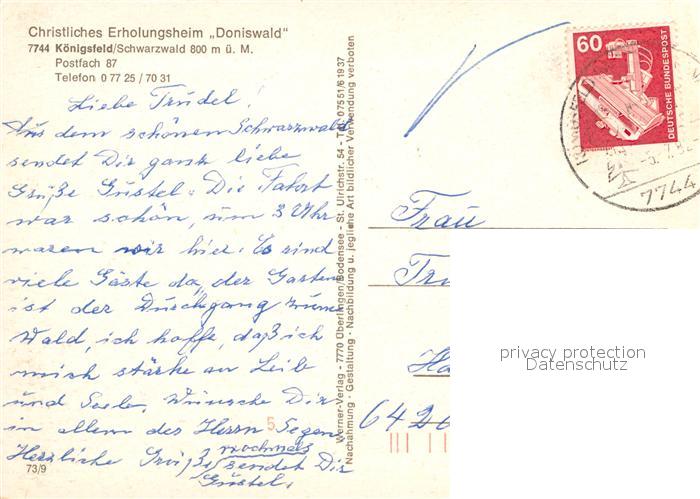 Christliches Erholungsheim „Doniswald"
7744 Königsfeld/Schwarzwald 800 m ü. M.
Postfach 87
Telefon 0 77 25 / 70 31
Liebe Trudel!
Aus dem schönen Schwarzwald
sendet Dir ganz liebe
Grüße Gustel. Die Fahrt
war schön, um 3 Uhr
waren wir hier. Es sind
viele Gäste da, der Garten
ist der Durchgang zum
Wald, ich hoffe, daß ich
mich stärke an Leib
und Seele. Wünsche Dir
in allem des Herrn Segen
Herzliche Grüße nochmals sendet Dir
Gustel.
73/9
Werner-Verlag - 7770 Überlingen/Bodensee - St. Ulrichstr. 54 - Tel. 07551/61937
Nachahmung - Gestaltung - Nachbildung u. jegliche Art bildlicher Verwendung verboten
5
60
DEUTSCHE BUNDESPOST
7744
Frau
Tru
Ha
6420
privacy protection
Datenschutz